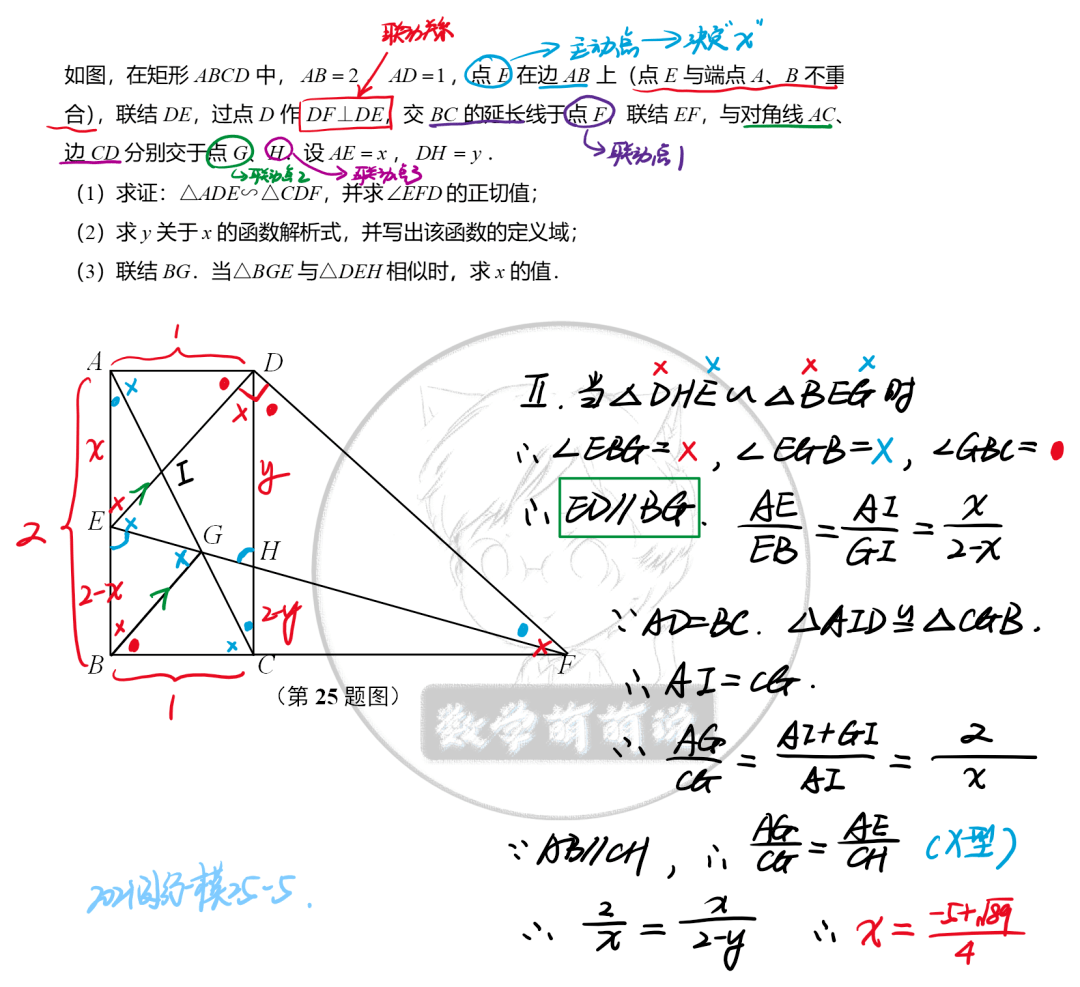 联动关系
主动点→决定"x"
如图，在矩形 ABCD 中， AB = 2 AD = 1 ，点 E 在边 AB 上（点 E 与端点 A、B 不重
合），联结 DE，过点 D 作 DF⊥DE，交 BC 的延长线于点 F，联结 EF，与对角线 AC、
边 CD 分别交于点 G、H．设 AE = x ， DH = y ．
→联动点1
→联动点2 →联动点3
（1）求证：△ADE∽△CDF，并求∠EFD 的正切值；
（2）求 y 关于 x 的函数解析式，并写出该函数的定义域；
（3）联结 BG．当△BGE 与△DEH 相似时，求 x 的值．
1
A D
x x
x I y
2 x x
E G H
x
2-x 2-y
x x x
B C F
1
（第 25 题图）
x x x x
Ⅱ.当△DHE∽△BEG时
∴∠EBG=x，∠EGB=x，∠GBC=●
∴ ED//BG. AE/EB=AI/GI=x/2-x
∵AD=BC. △AID≌△CGB.
∴AI=CG.
数学萌萌说
∴ AG/CG=AI+GI/AI=2/x
∵AB//CH，∴ AG/CG=AE/CH （X型）
∴ 2/x=x/2-y ∴ x=-5+√89/4
2021闵行一模25-5.